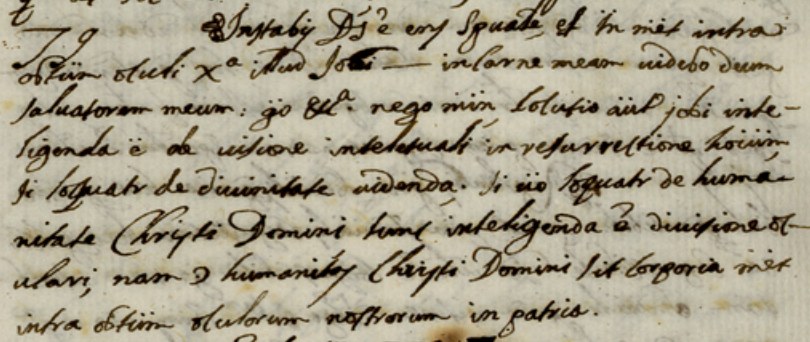 79 Instabis Ds ē ens Spuale, et ïn met intra
obtüm oculi Xa illud Jobi — in carne mea videbo dum
salvatorem meum: go &a. nego min, Solutio aut jobi inte-
ligenda ē de visione inteletuali in resurrectione hoïum
si loquatr de divinitate videnda. si vo loquatr de huma-
nitate Christi Domini tunc inteligenda ē divisione oc-
ulari, nam humanitas Christi Domini sit corporia met
intra obtüm oculorum nostrorum in patria.